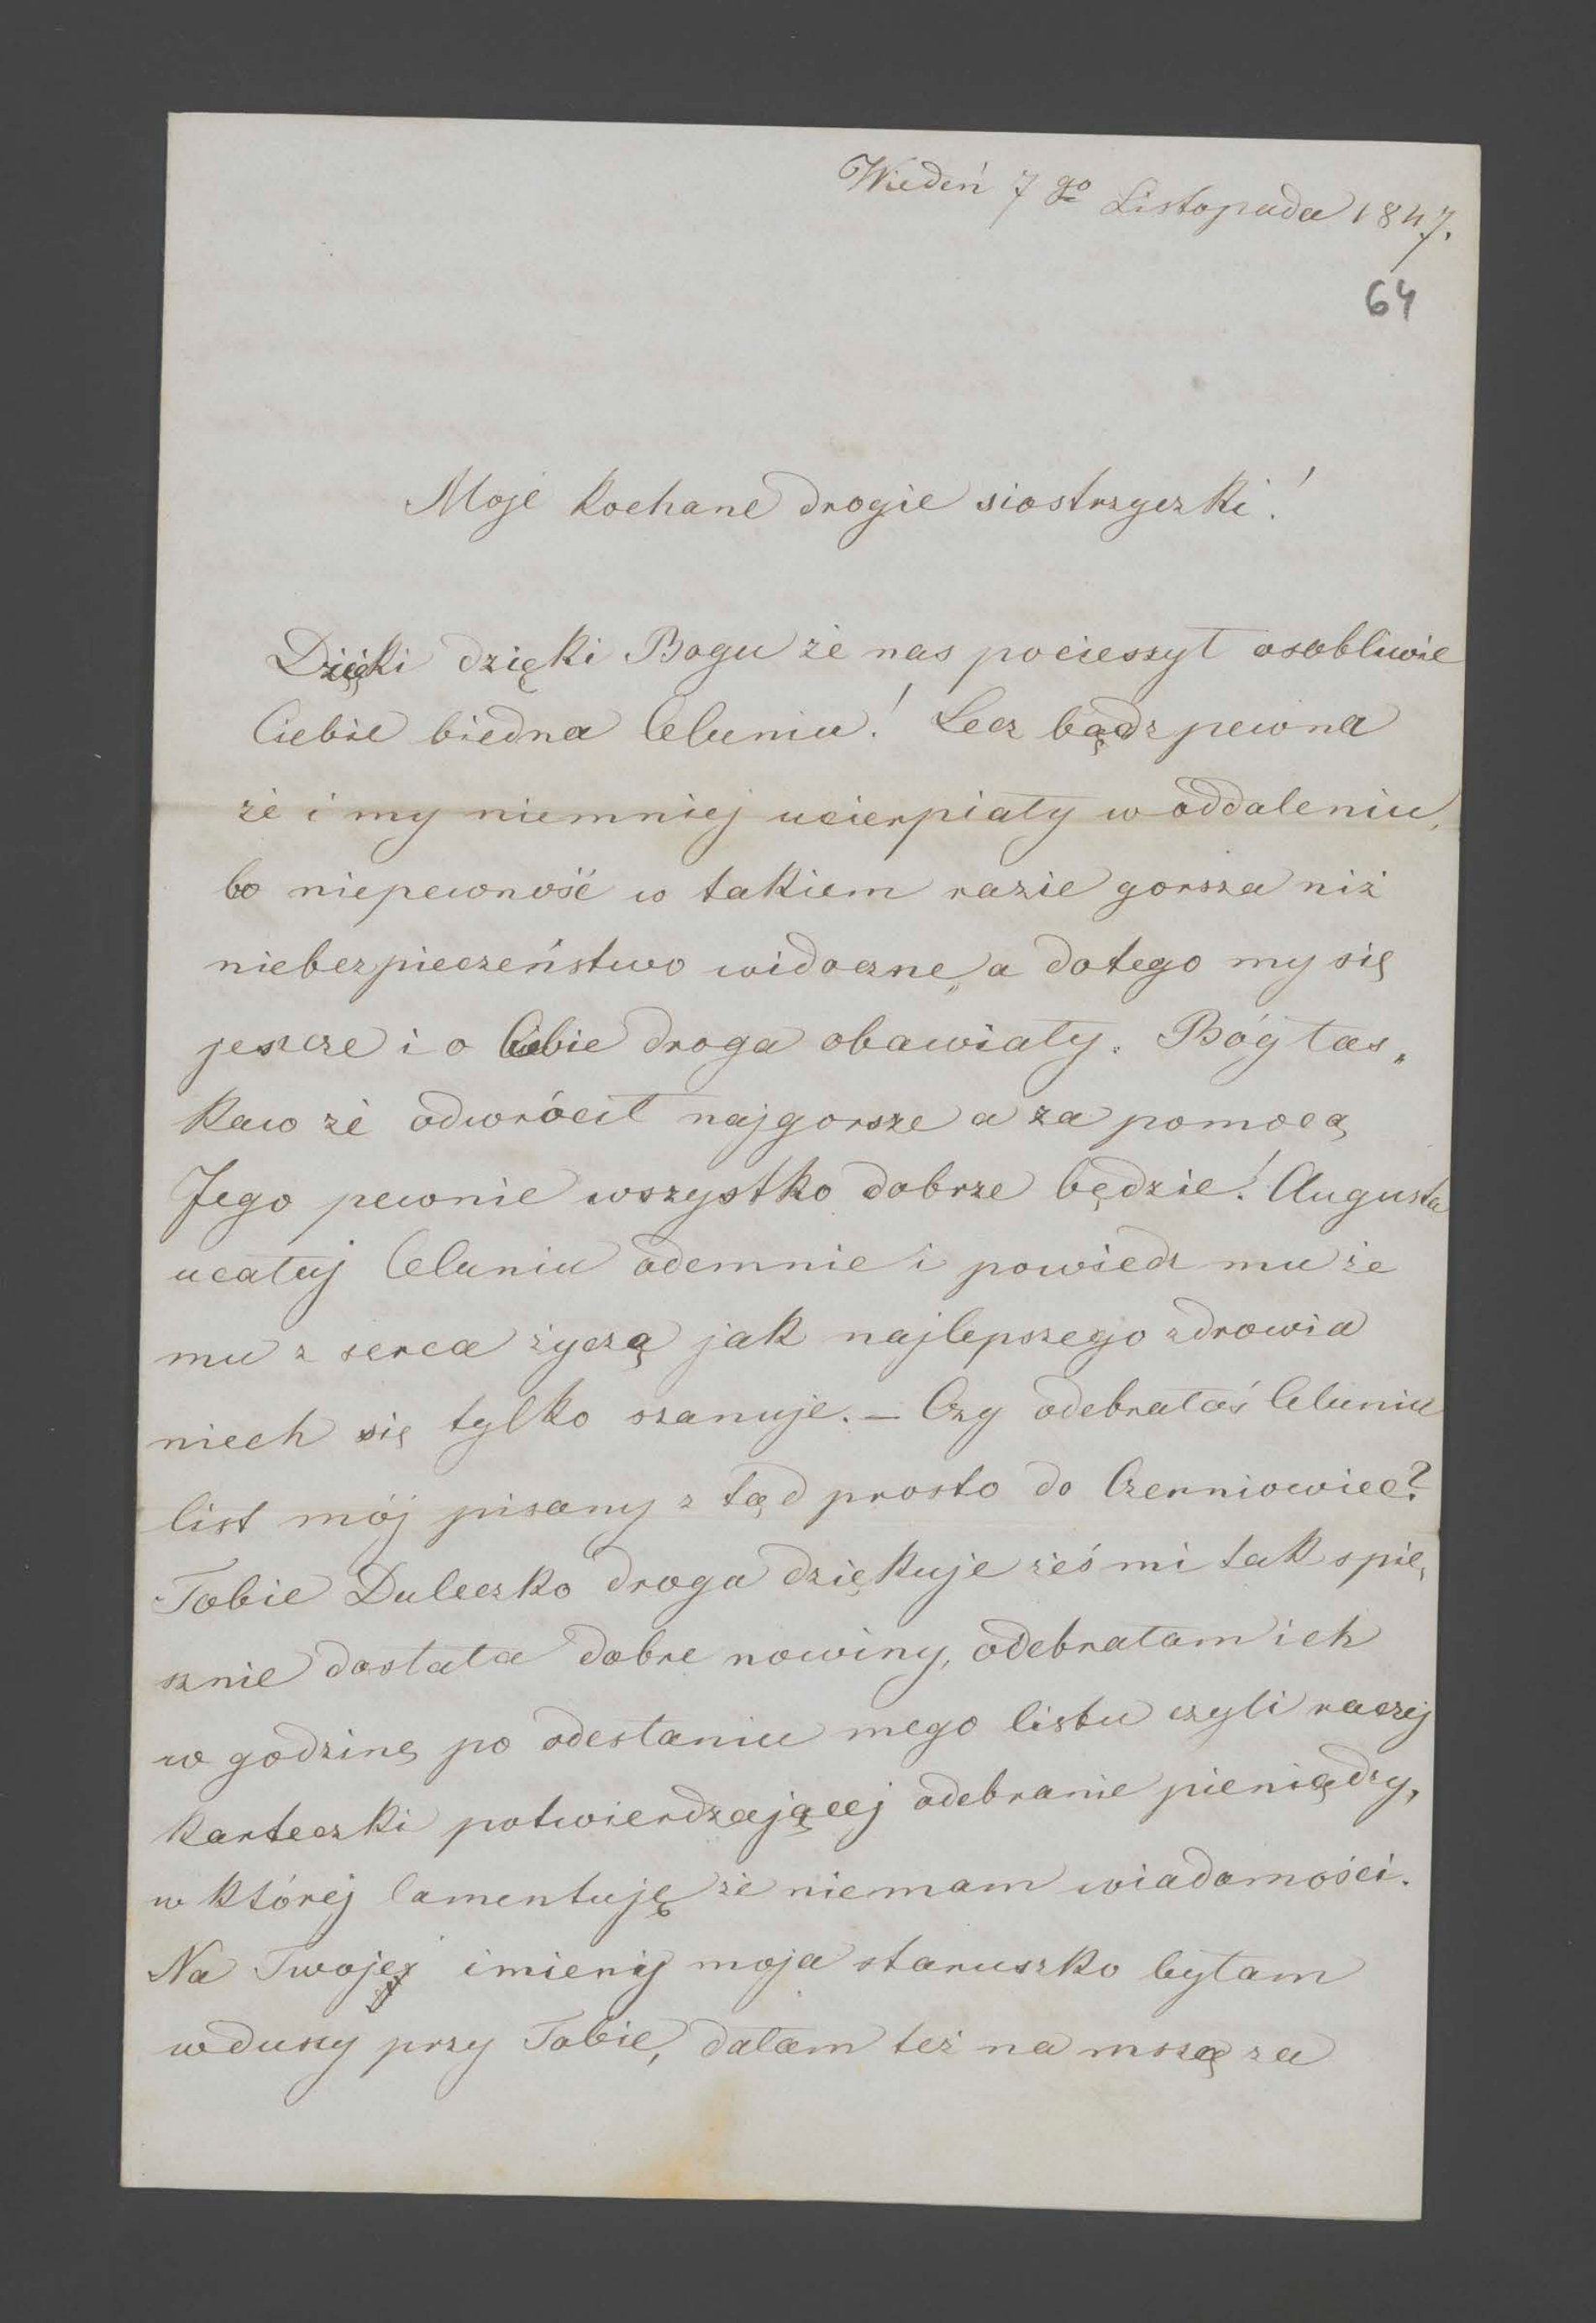 Wiedeń 7go Listopada 1847.
64
Moje kochane drogie siostrzyczki!
Dzięki dzięki Bogu że nas pocieszył osobliwie
Ciebie biedna Celuniu! Lecz bądz pewna
że i my niemniej ucierpiały w oddaleniu,
bo niepewność w takiem razie gorsza niż
niebezpieczeństwo widoczne, a dotego my się
jeszcze i o Ciebie droga obawiały. Bóg łas„
kaw że odwrócił najgorsze a za pomocą
Jego pewnie wszystko dobrze będzie! Augusta
ucałuj Celuniu odemnie i powiedz mu że
mu z serca życzą jak najlepszego zdrowia
niech się tylko szanuje. – Czy odebrałaś Celuniu
list mój pisany z tąd prosto do Czerniowiec?
Tobie Duleczko droga dziękuje żeś mi tak spie„
sznie dostała dobre nowiny, odebrałam ich
w godzinę po odesłaniu mego listu czyli raczej
karteczki potwierdzającej odebranie pieniądzy,
w której lamentuję że niemam wiadomości.
Na Twojej imieniy moja staruszko byłam
wduszy przy Tobie, dałam też na mszą za